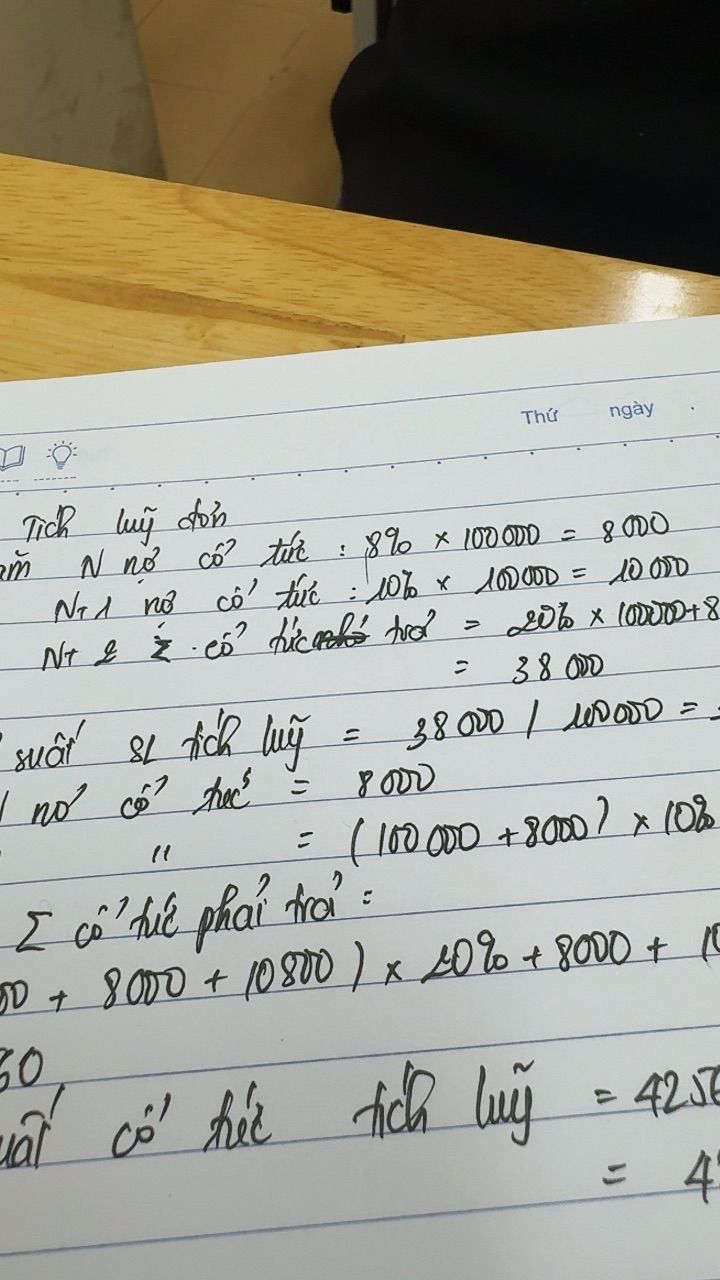 Thứ ngày .
Tích luỹ đơn
ăm N nợ cổ tức : 8% × 100000 = 8000
N+1 nợ cổ tức : 10% × 100000 = 10000
N+2 cổ tức trả = 20% × 100000+8
= 38000
suất SL tích luỹ = 38000 / 100000 =
nợ cổ tức = 8000
" = (100000 + 8000) × 10%
Σ cổ tức phải trả :
00 + 8000 + 10800) × 20% + 8000 + 10
60
uất cổ tức tích luỹ = 4256
= 4